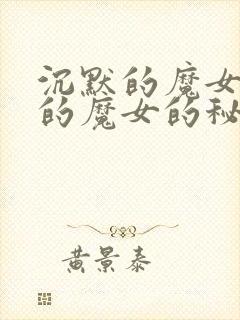 沉默的魔女
的魔女的秘
黄景泰